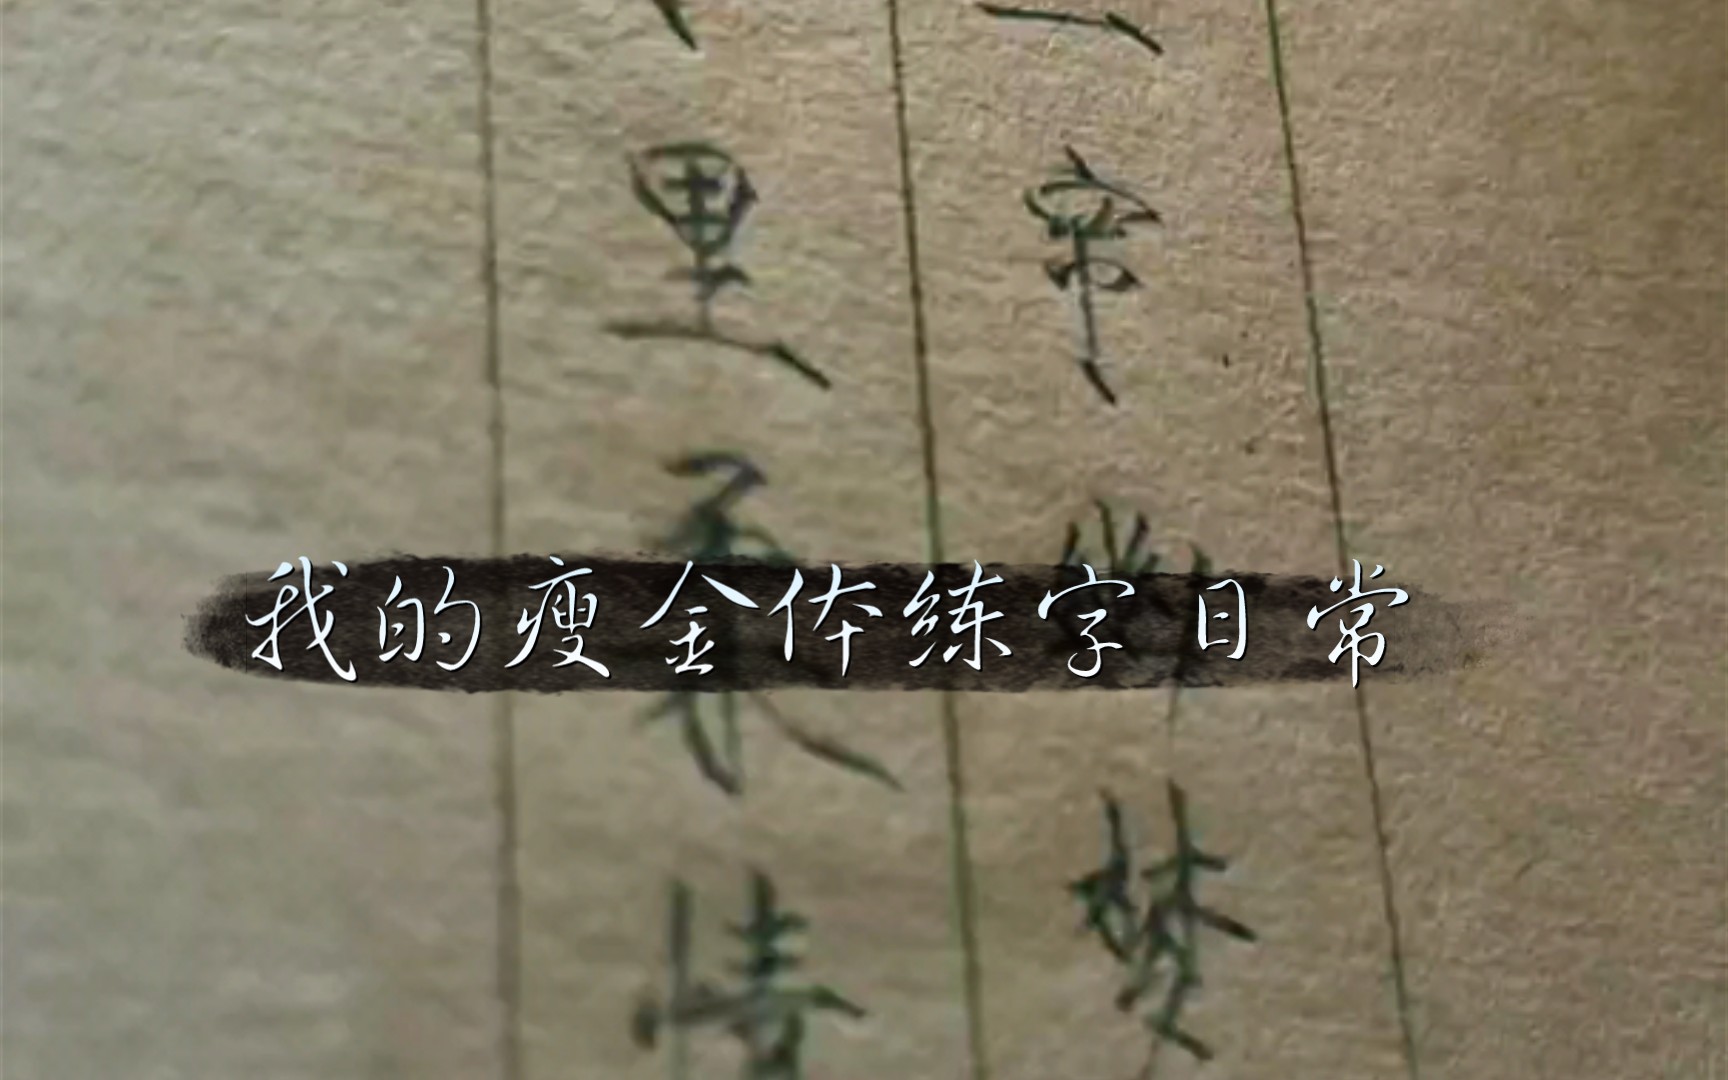 我的瘦金体练字日常
一帘幽梦
里柔情